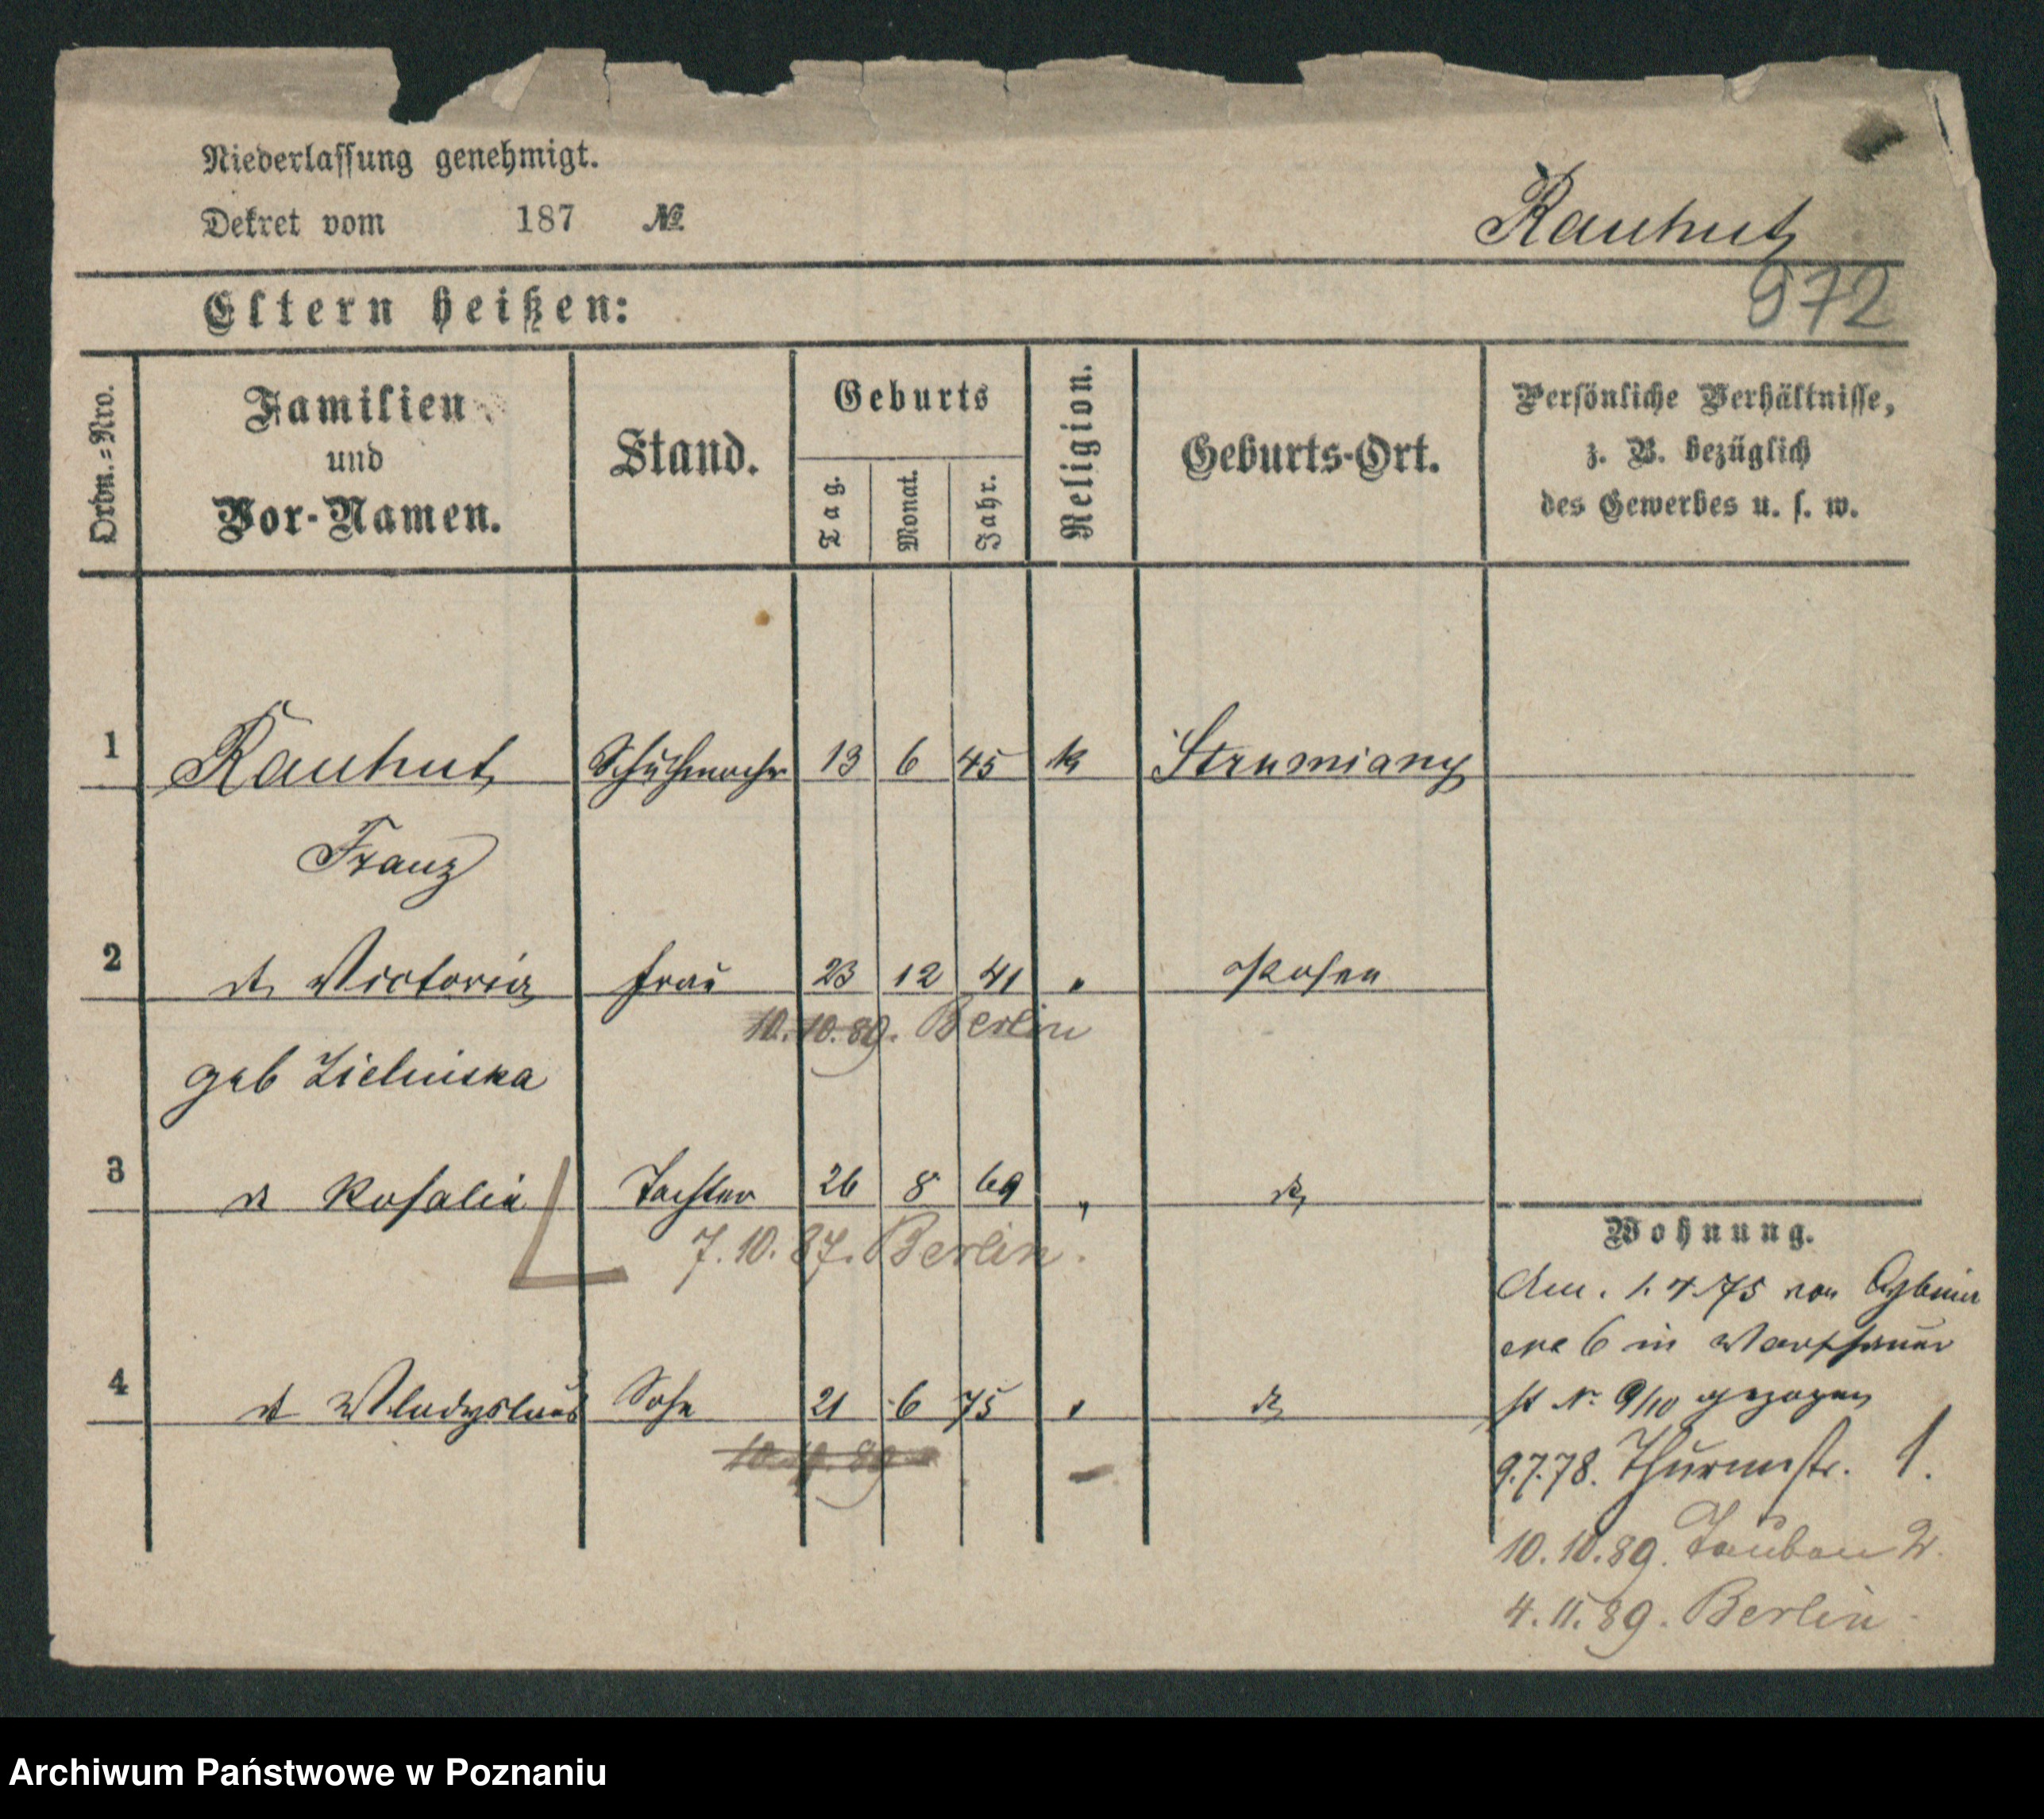 Niederlassung genehmigt.
Dekret vom 187 №
Rauhut
972
Eltern heißen:
Ordn.=Nro.
Familien
und
Vor-Namen.
Stand.
Geburts
Tag.
Monat.
Jahr.
Religion.
Geburts-Ort.
Persönliche Verhältnisse,
z. B. bezüglich
des Gewerbes u. s. w.
1 Rauhut Schuhmacher 13 6 45 k Strumiany
Franz
2 dt Victoria Frau 23 12 41 " Posen
10.10.89. Berlin
geb Zielinska
3 dt Rosalia Tochter 26 8 69 " dt
7.10.87. Berlin.
4 dt Wladyslaus Sohn 21 6 75 " dt
10.10.89
Wohnung.
1.4.75 von
6 in Warschauer
st Nr 9/10 gezogen
9.7.78. Thurmstr. 1.
10.10.89. Tauben 2.
4.11.89. Berlin
Archiwum Państwowe w Poznaniu